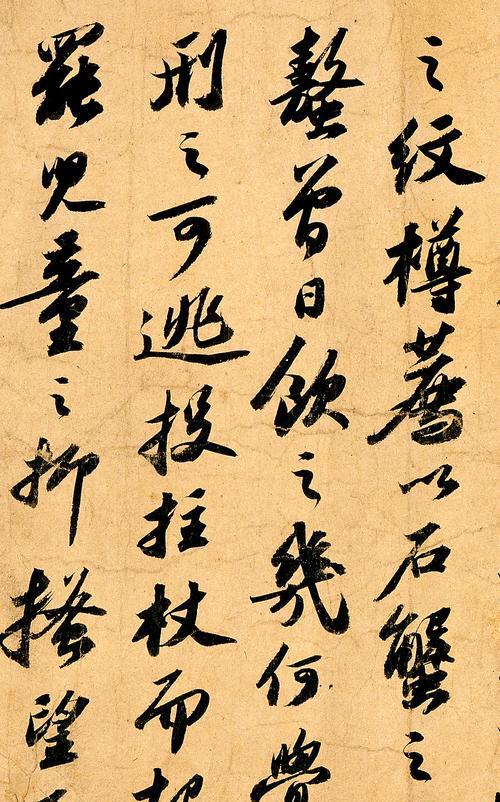 之紋樽薦以石蟹之
螯曾日飲之幾何覺
刑之可逃投拄杖而起
罷兒童之抑搔望